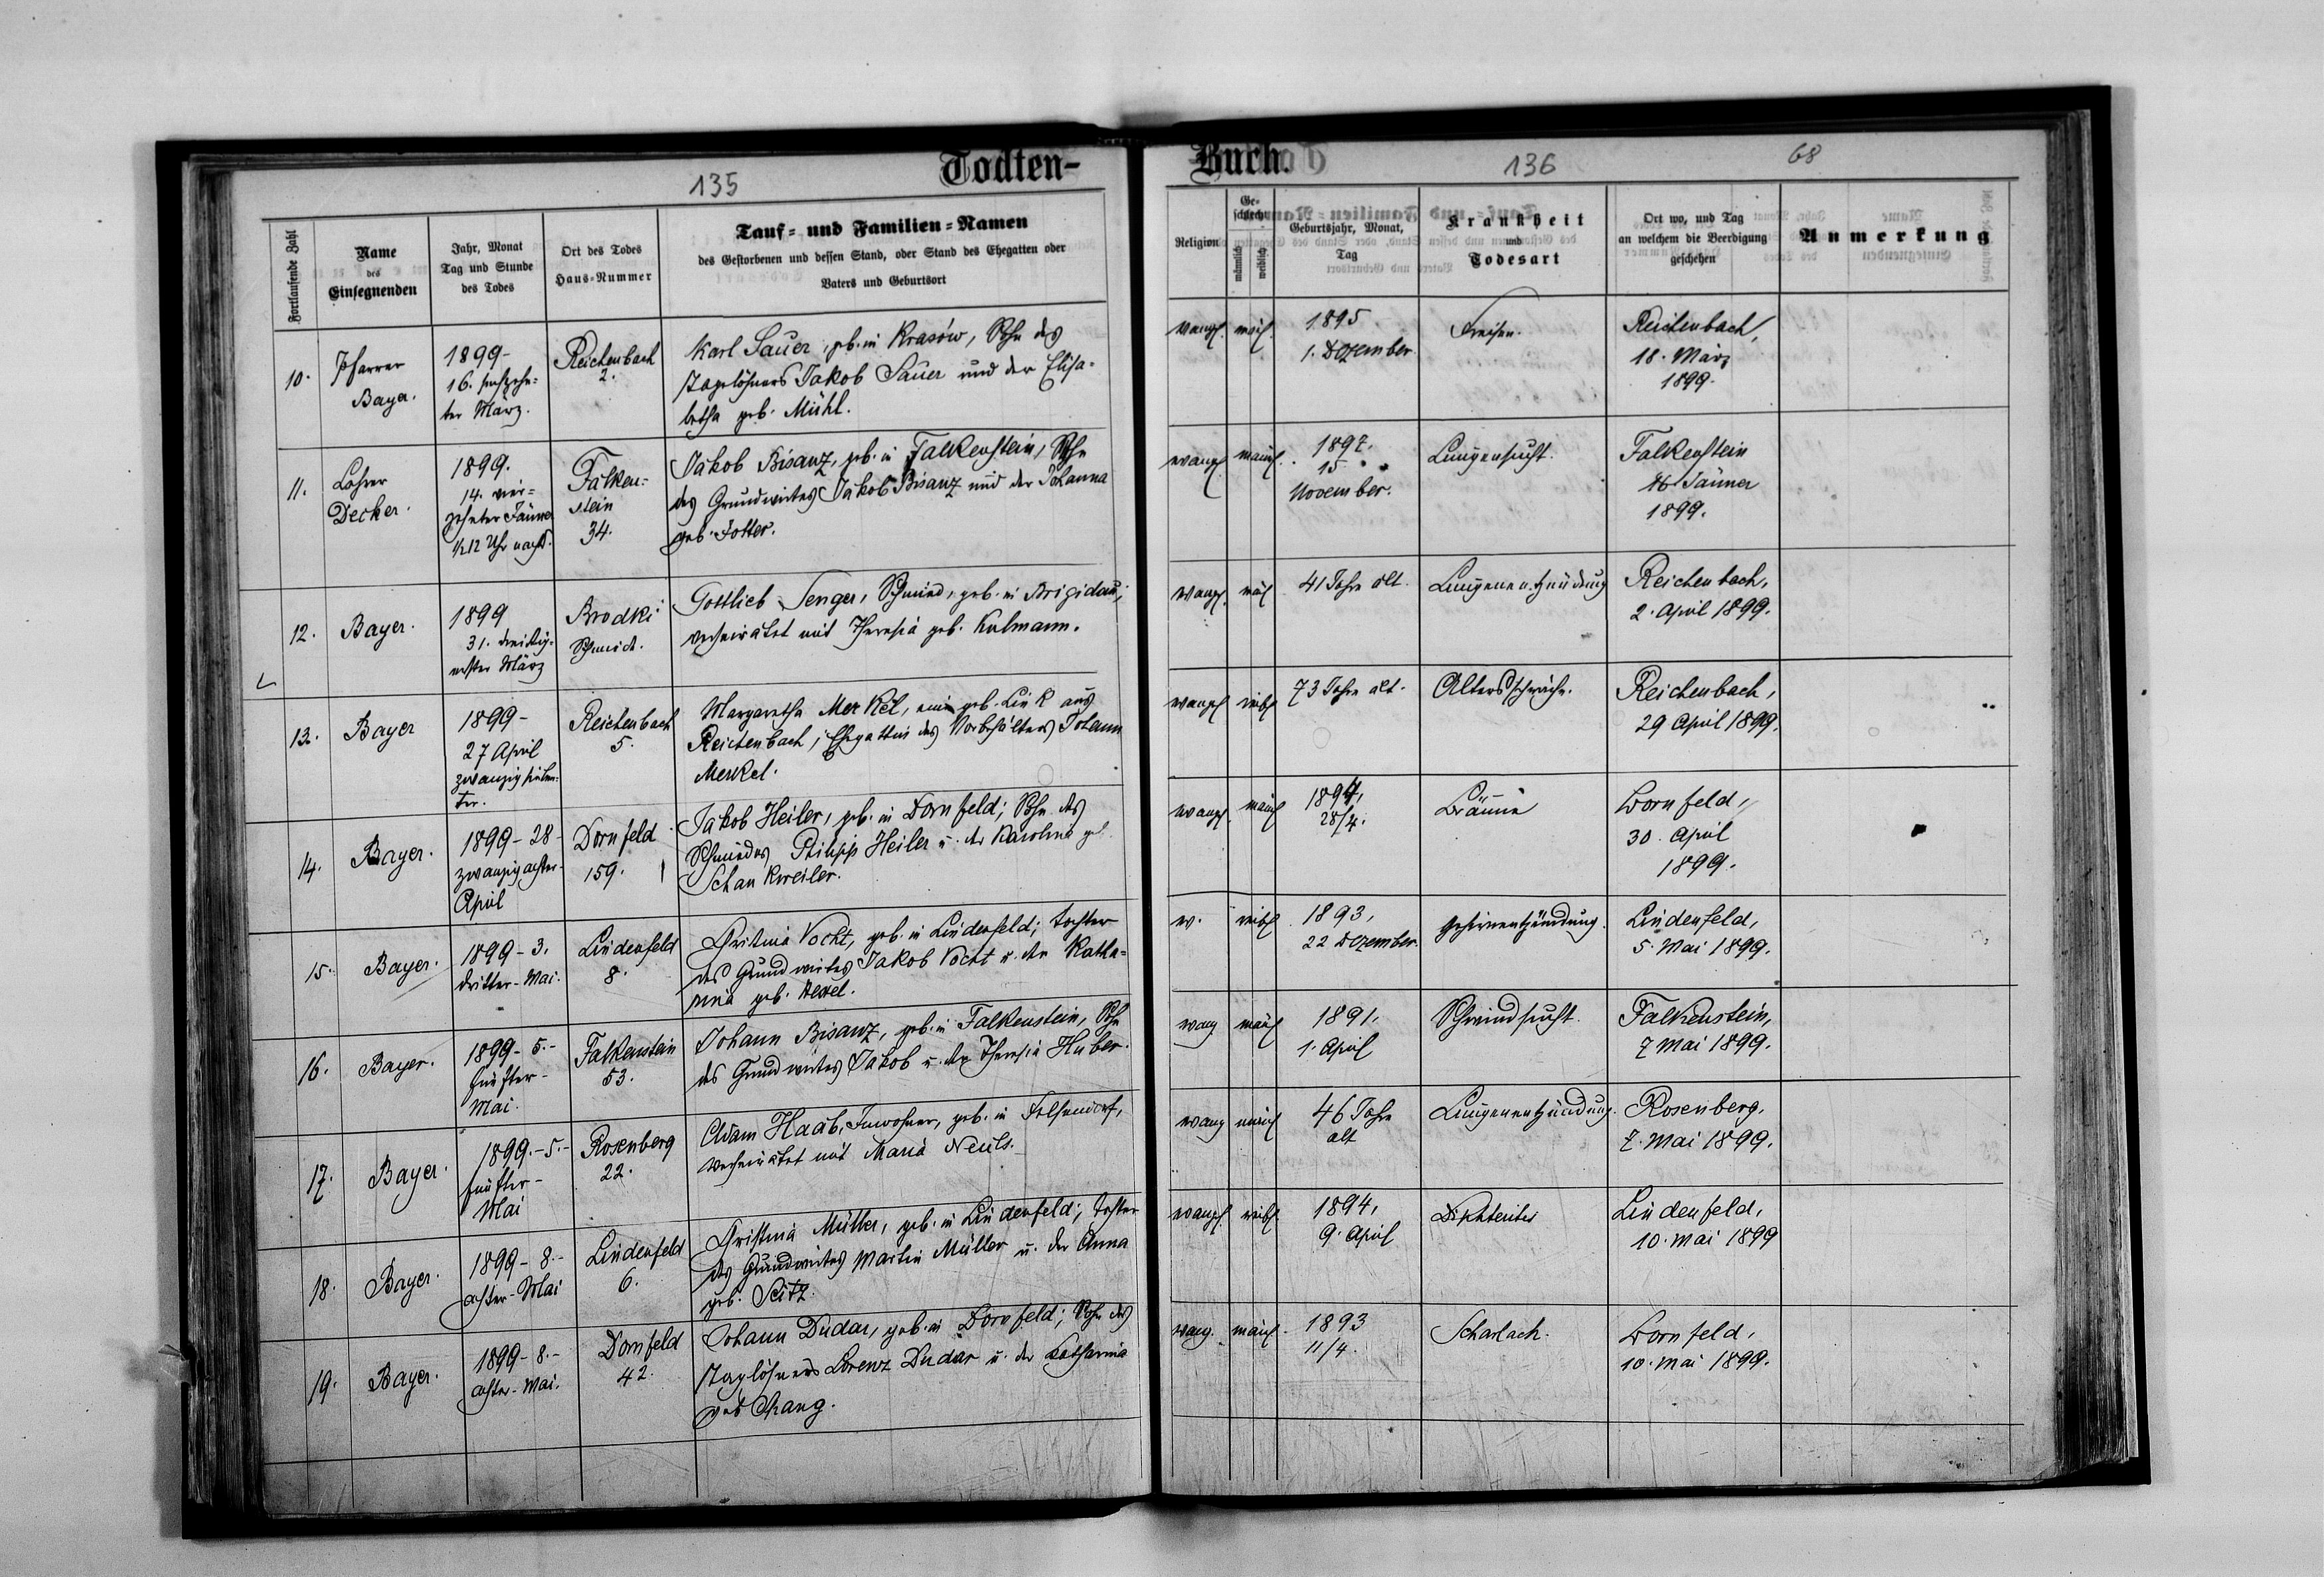 Todten-
135
Fortlaufende Zahl
Name
des
Einsegnenden
Jahr, Monat
Tag und Stunde
des Todes
Ort des Todes
Haus-Nummer
Tauf- und Familien-Namen
des Gestorbenen und dessen Stand, oder Stand des Ehegatten oder
Vaters und Geburtsort
10.
Pfarrer
Bayer.
1899-
16. sechzehn-
ter März.
Reichenbach
2.
Karl Sauer, geb. in Krasów, Sohn des
Tagelöhners Jakob Sauer und der Elisa-
betha geb. Mühl.
11.
Lehrer
Decker.
1899.
14. vier-
zehnter Jänner
½12 Uhr nachts.
Falken-
stein
34.
Jakob Bisanz, geb. in Falkenstein, Sohn
des Grundwirtes Jakob Bisanz und der Johanna
geb.
12.
Bayer.
1899
31. dreißig-
erster März
Brodki
Schmied.
Gottlieb Senger, Schmied, geb. in Brigidau,
verheiratet mit Theresia geb. Kulmann.
13.
Bayer
1899-
27 April
zwanzigsieben-
ter.
Reichenbach
5.
Margaretha Merkel, eine geb. Link aus
Reichenbach, Ehegattin des Vorbehälters Johann
Merkel.
14.
Bayer.
1899-28-
zwanzigachter-
April
Dornfeld
159.
Jakob Heiler, geb. in Dornfeld; Sohn des
Schmiedes Philipp Heiler u. der Karolina geb.
Schankweiler.
15.
Bayer.
1899-3.
dritter-Mai.
Lindenfeld
8.
Christina Vocht, geb. in Lindenfeld; Tochter
des Grundwirtes Jakob Vocht u. der Katha-
rina geb.
16.
Bayer.
1899-5.-
fünfter-
Mai.
Falkenstein
53.
Johann Bisanz, geb. in Falkenstein, Sohn
des Grundwirtes Jakob u. der Theresia Huber.
17.
Bayer.
1899.-5.-
fünfter-
Mai
Rosenberg
22.
Adam Haab, Inwohner, geb. in Felsendorf,
verheiratet mit Maria Neuls.
18.
Bayer.
1899-8.-
achter-Mai
Lindenfeld
6.
Christina Müller, geb. in Lindenfeld; Tochter
des Grundwirtes Martin Müller u. der Anna
geb. Seitz.
19.
Bayer.
1899-8.-
achter-Mai.
Dornfeld
42.
Johann Dudar, geb. in Dornfeld; Sohn des
Taglöhners Lorenz Dudar u. der Katharina
geb.
Buch.
136
68
Religion
Ge-
schlecht
männlich
weiblich
Geburtsjahr, Monat,
Tag
Krankheit
und
Todesart
Ort wo, und Tag
an welchem die Beerdigung
geschehen
Anmerkung
evangel.
männl.
1895
1. Dezember
Freisen.
Reichenbach,
18. März
1899.
evangel.
männl.
1897.
15
November.
Lungensucht.
Falkenstein
16 Jänner
1899.
evangel.
männl.
41 Jahre alt.
Lungenentzündung
Reichenbach,
2. April 1899.
evangel
weibl
73 Jahre alt.
Altersschwäche.
Reichenbach,
29 April 1899.
evangel
männl
1894,
28/4.
Bräune
Dornfeld,
30. April
1899.
ev.
weibl
1893,
22 Dezember.
Gehirnentzündung.
Lindenfeld,
5. Mai 1899.
evang
männl
1891,
1. April
Schwindsucht.
Falkenstein,
7 Mai 1899.
evang
männl
46 Jahre
alt
Lungenentzündung.
Rosenberg,
7. Mai 1899.
evangel.
weibl.
1894,
9. April
Diphteritis
Lindenfeld,
10. Mai 1899
evang.
männl.
1893
11/4.
Scharlach.
Dornfeld,
10. Mai 1899.